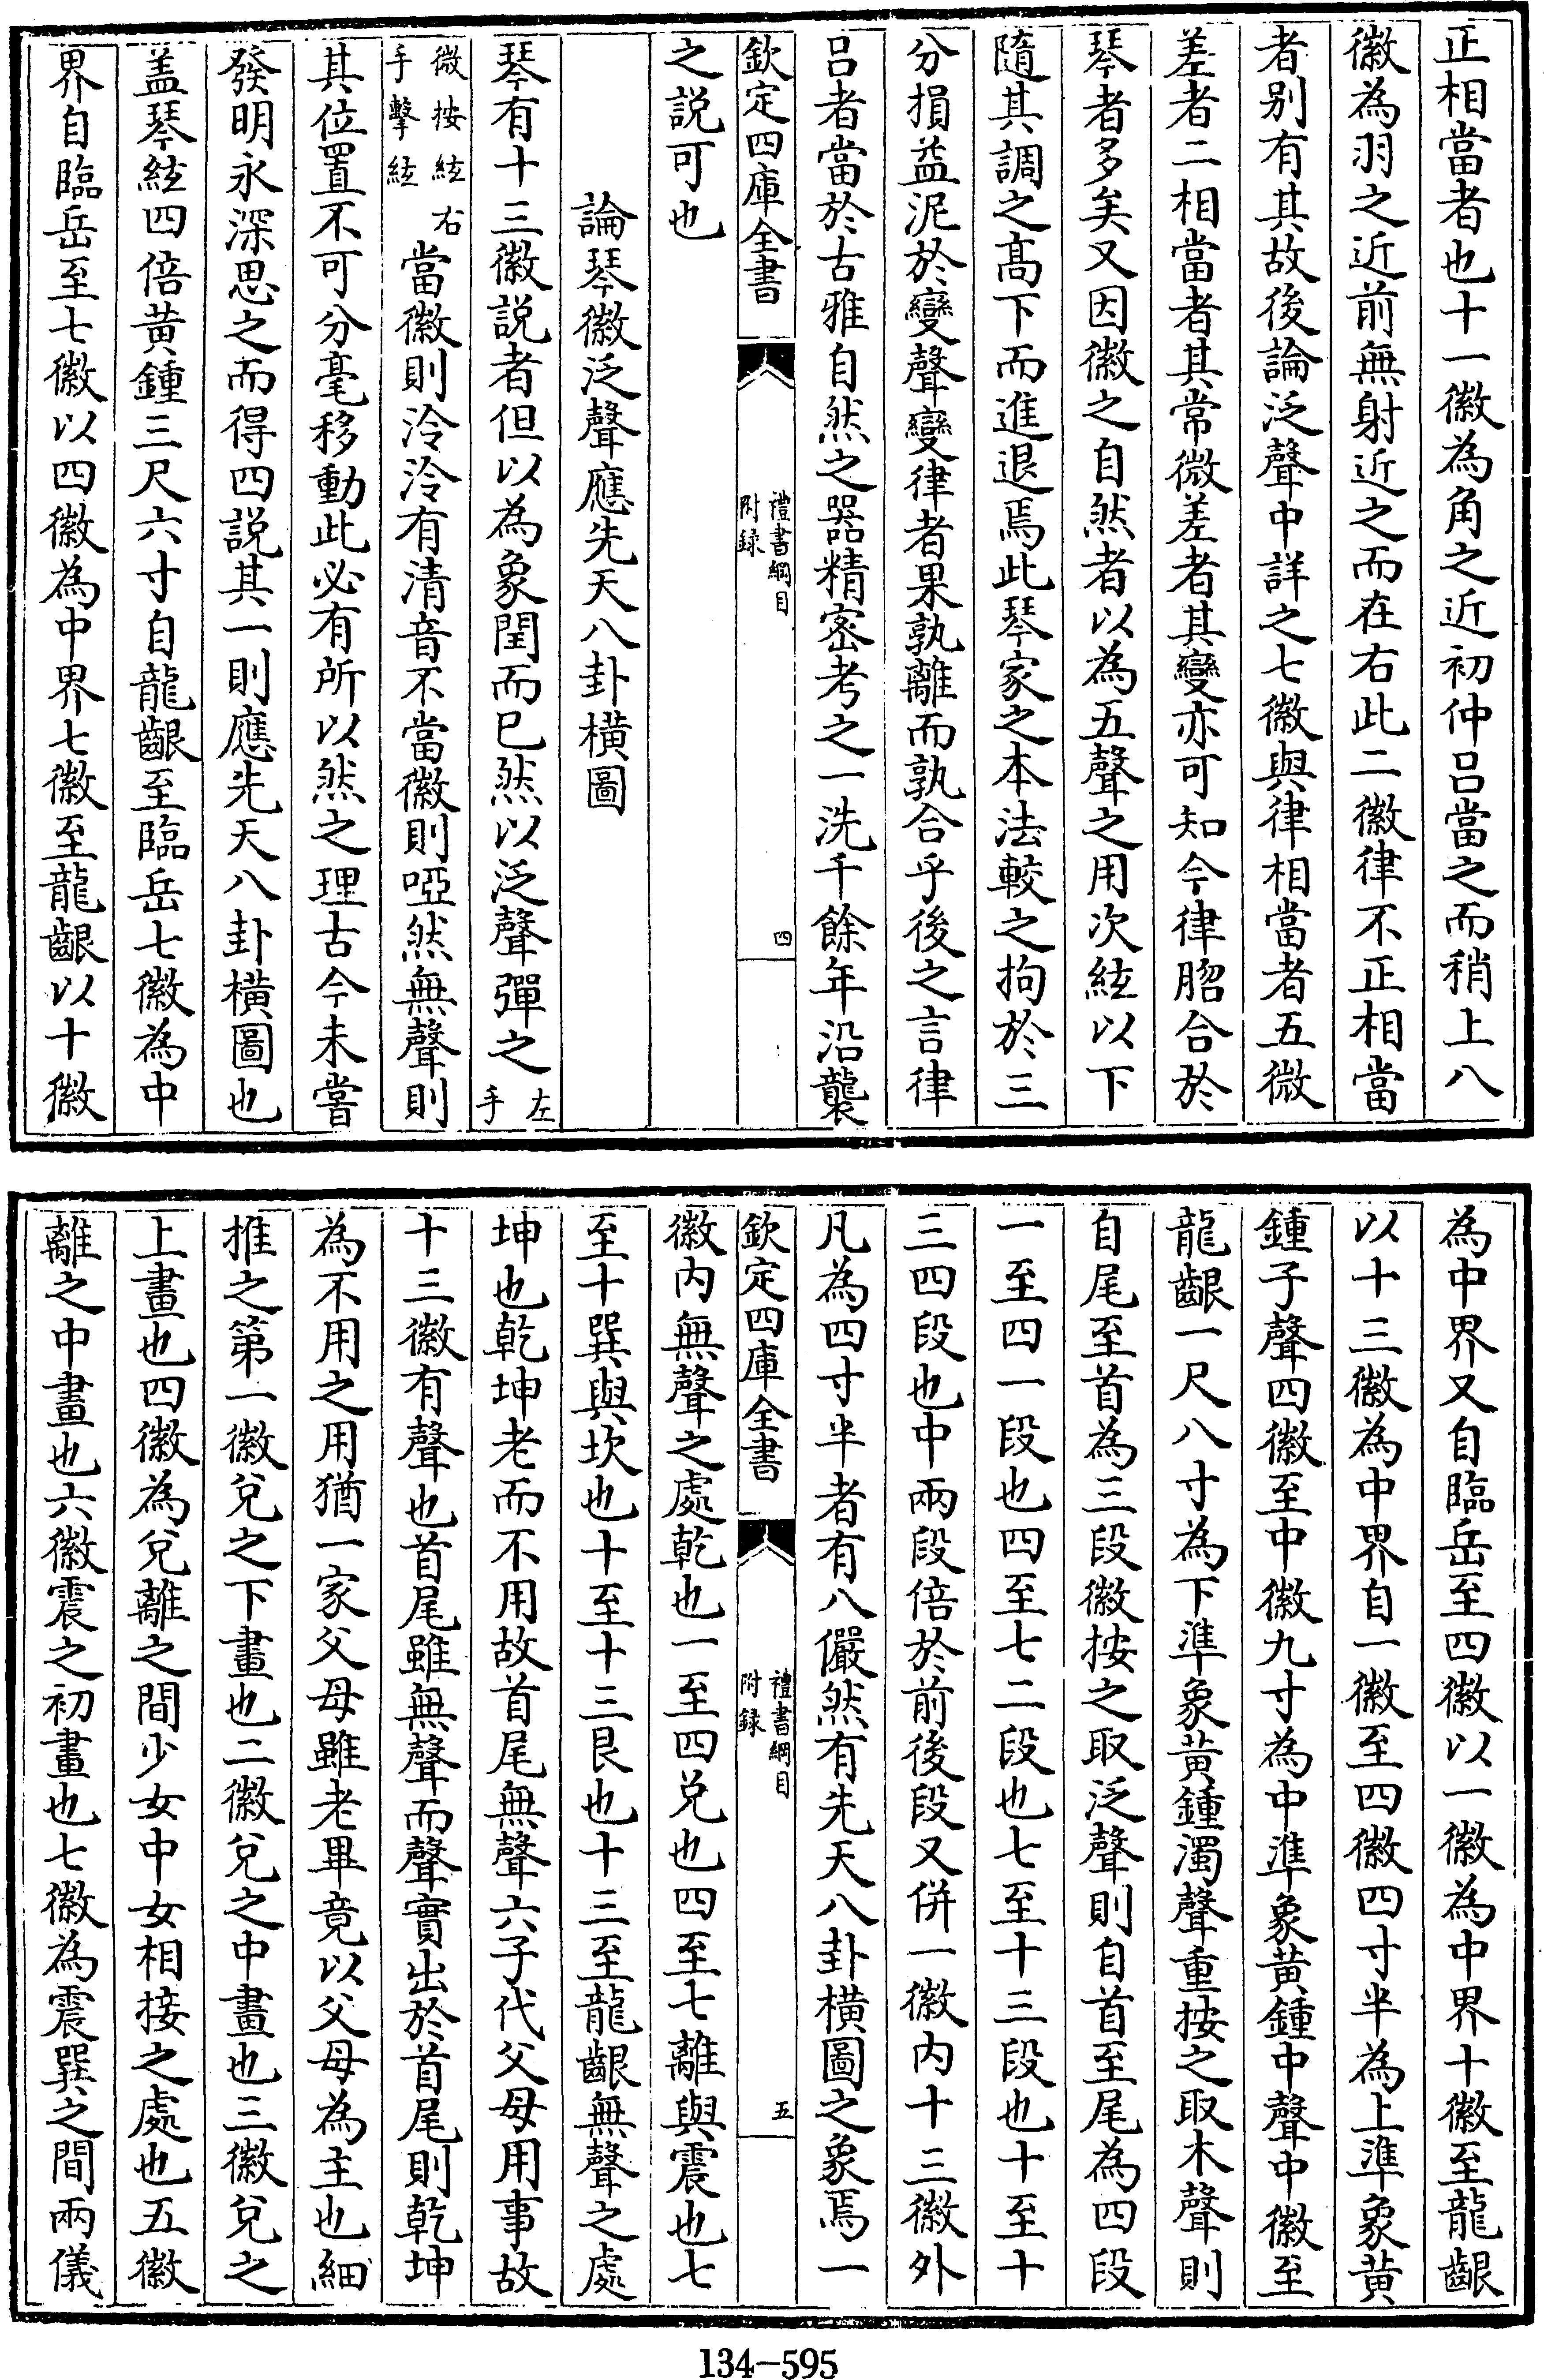 正相當者也十一徽為角之近初仲吕當之而稍上八
徽為羽之近前無射近之而在右此二徽律不正相當
者别有其故後論泛聲中詳之七徽與律相當者五微
差者二相當者其常微差者其變亦可知今律脗合於
琴者多矣又因徽之自然者以為五聲之用次絃以下
隨其調之高下而進退焉此琴家之本法較之拘於三
分損益泥於變聲變律者果孰離而孰合乎後之言律
吕者當於古雅自然之器精密考之一洗千餘年沿襲
欽定四庫全書
禮書綱目
附録
四
之說可也
論琴徽泛聲應先天八卦橫圖
琴有十三徽說者但以為象閏而已然以泛聲彈之左
手
微按絃右
手擊絃
當徽則泠泠有清音不當徽則啞然無聲則
其位置不可分毫移動此必有所以然之理古今未嘗
發明永深思之而得四說其一則應先天八卦橫圖也
盖琴絃四倍黄鍾三尺六寸自龍齦至臨岳七徽為中
界自臨岳至七徽以四徽為中界七徽至龍齦以十徽
為中界又自臨岳至四徽以一徽為中界十徽至龍齦
以十三徽為中界自一徽至四徽四寸半為上準象黄
鍾子聲四徽至中徽九寸為中準象黄鍾中聲中徽至
龍齦一尺八寸為下準象黄鍾濁聲重按之取木聲則
自尾至首為三段徽按之取泛聲則自首至尾為四段
一至四一段也四至七二段也七至十三段也十至十
三四段也中兩段倍於前後段又併一徽内十三徽外
凡為四寸半者有八儼然有先天八卦橫圖之象焉一
欽定四庫全書
禮書綱目
附録
五
徽内無聲之處乾也一至四兑也四至七離與震也七
至十巽與坎也十至十三艮也十三至龍齦無聲之處
坤也乾坤老而不用故首尾無聲六子代父母用事故
十三徽有聲也首尾雖無聲而聲實出於首尾則乾坤
為不用之用猶一家父母雖老畢竟以父母為主也細
推之第一徽兑之下畫也二徽兑之中畫也三徽兑之
上畫也四徽為兑離之間少女中女相接之處也五徽
離之中畫也六徽震之初畫也七徽為震巽之間兩儀
134-595